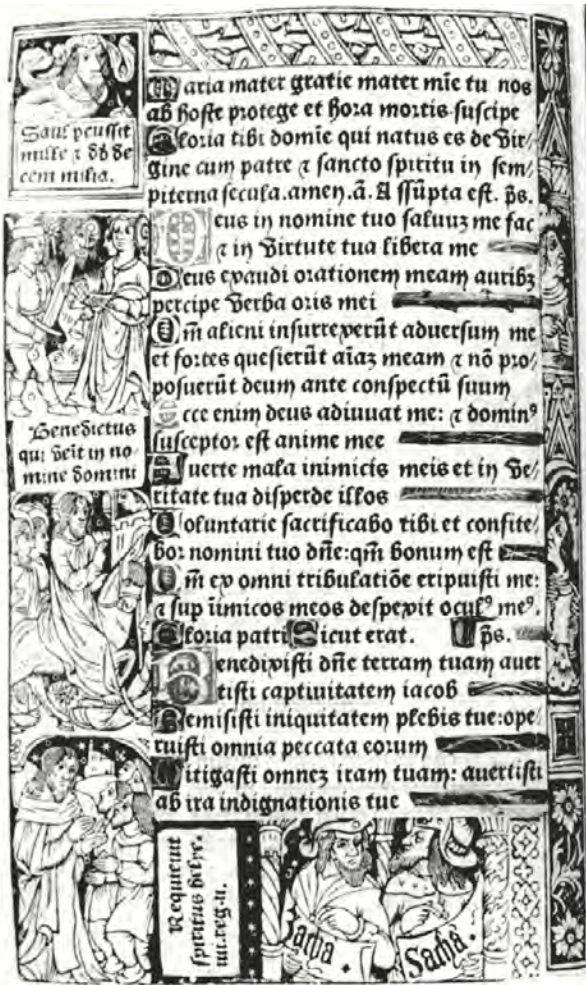 Saul peussit
mille ⁊ dd de
cem milia.
Benedictus
qui Veit in no
mine domini
Maria mater gratie mater mīe tu nos
ab hoste protege et hora mortis suscipe
Gloria tibi domīe qui natus es de Vir/
gine cum patre ⁊ sancto spiritu in sem/
piterna secula.amen.ā. Assūpta est. p̄s.
Deus in nomine tuo saluuz me fac
⁊ in Virtute tua libera me
Deus exaudi orationem meam auribꝫ
percipe Verba oris mei
Qm̄ alieni insurrexerūt aduersum me
et fortes quesierūt aīaz meam ⁊ nō pro/
posuerūt deum ante conspectū suum
Ecce enim deus adiuuat me: ⁊ dominꝰ
susceptor est anime mee
Auerte mala inimicis meis et in Ve/
ritate tua disperde illos
Voluntarie sacrificabo tibi et confite/
bor nomini tuo dn̄e:qm̄ bonum est
Qm̄ ex omni tribulatiōe eripuisti me:
⁊ sup īimicos meos despexit oculꝰ meꝰ.
Gloria patri Sicut erat. p̄s.
Benedixisti dn̄e terram tuam auer
tisti captiuitatem iacob
Remisisti iniquitatem plebis tue:ope/
ruisti omnia peccata eorum
Mitigasti omnez iram tuam: auertisti
ab ira indignationis tue
Requieuit
spiritus helye.
iiii.reg.ii.